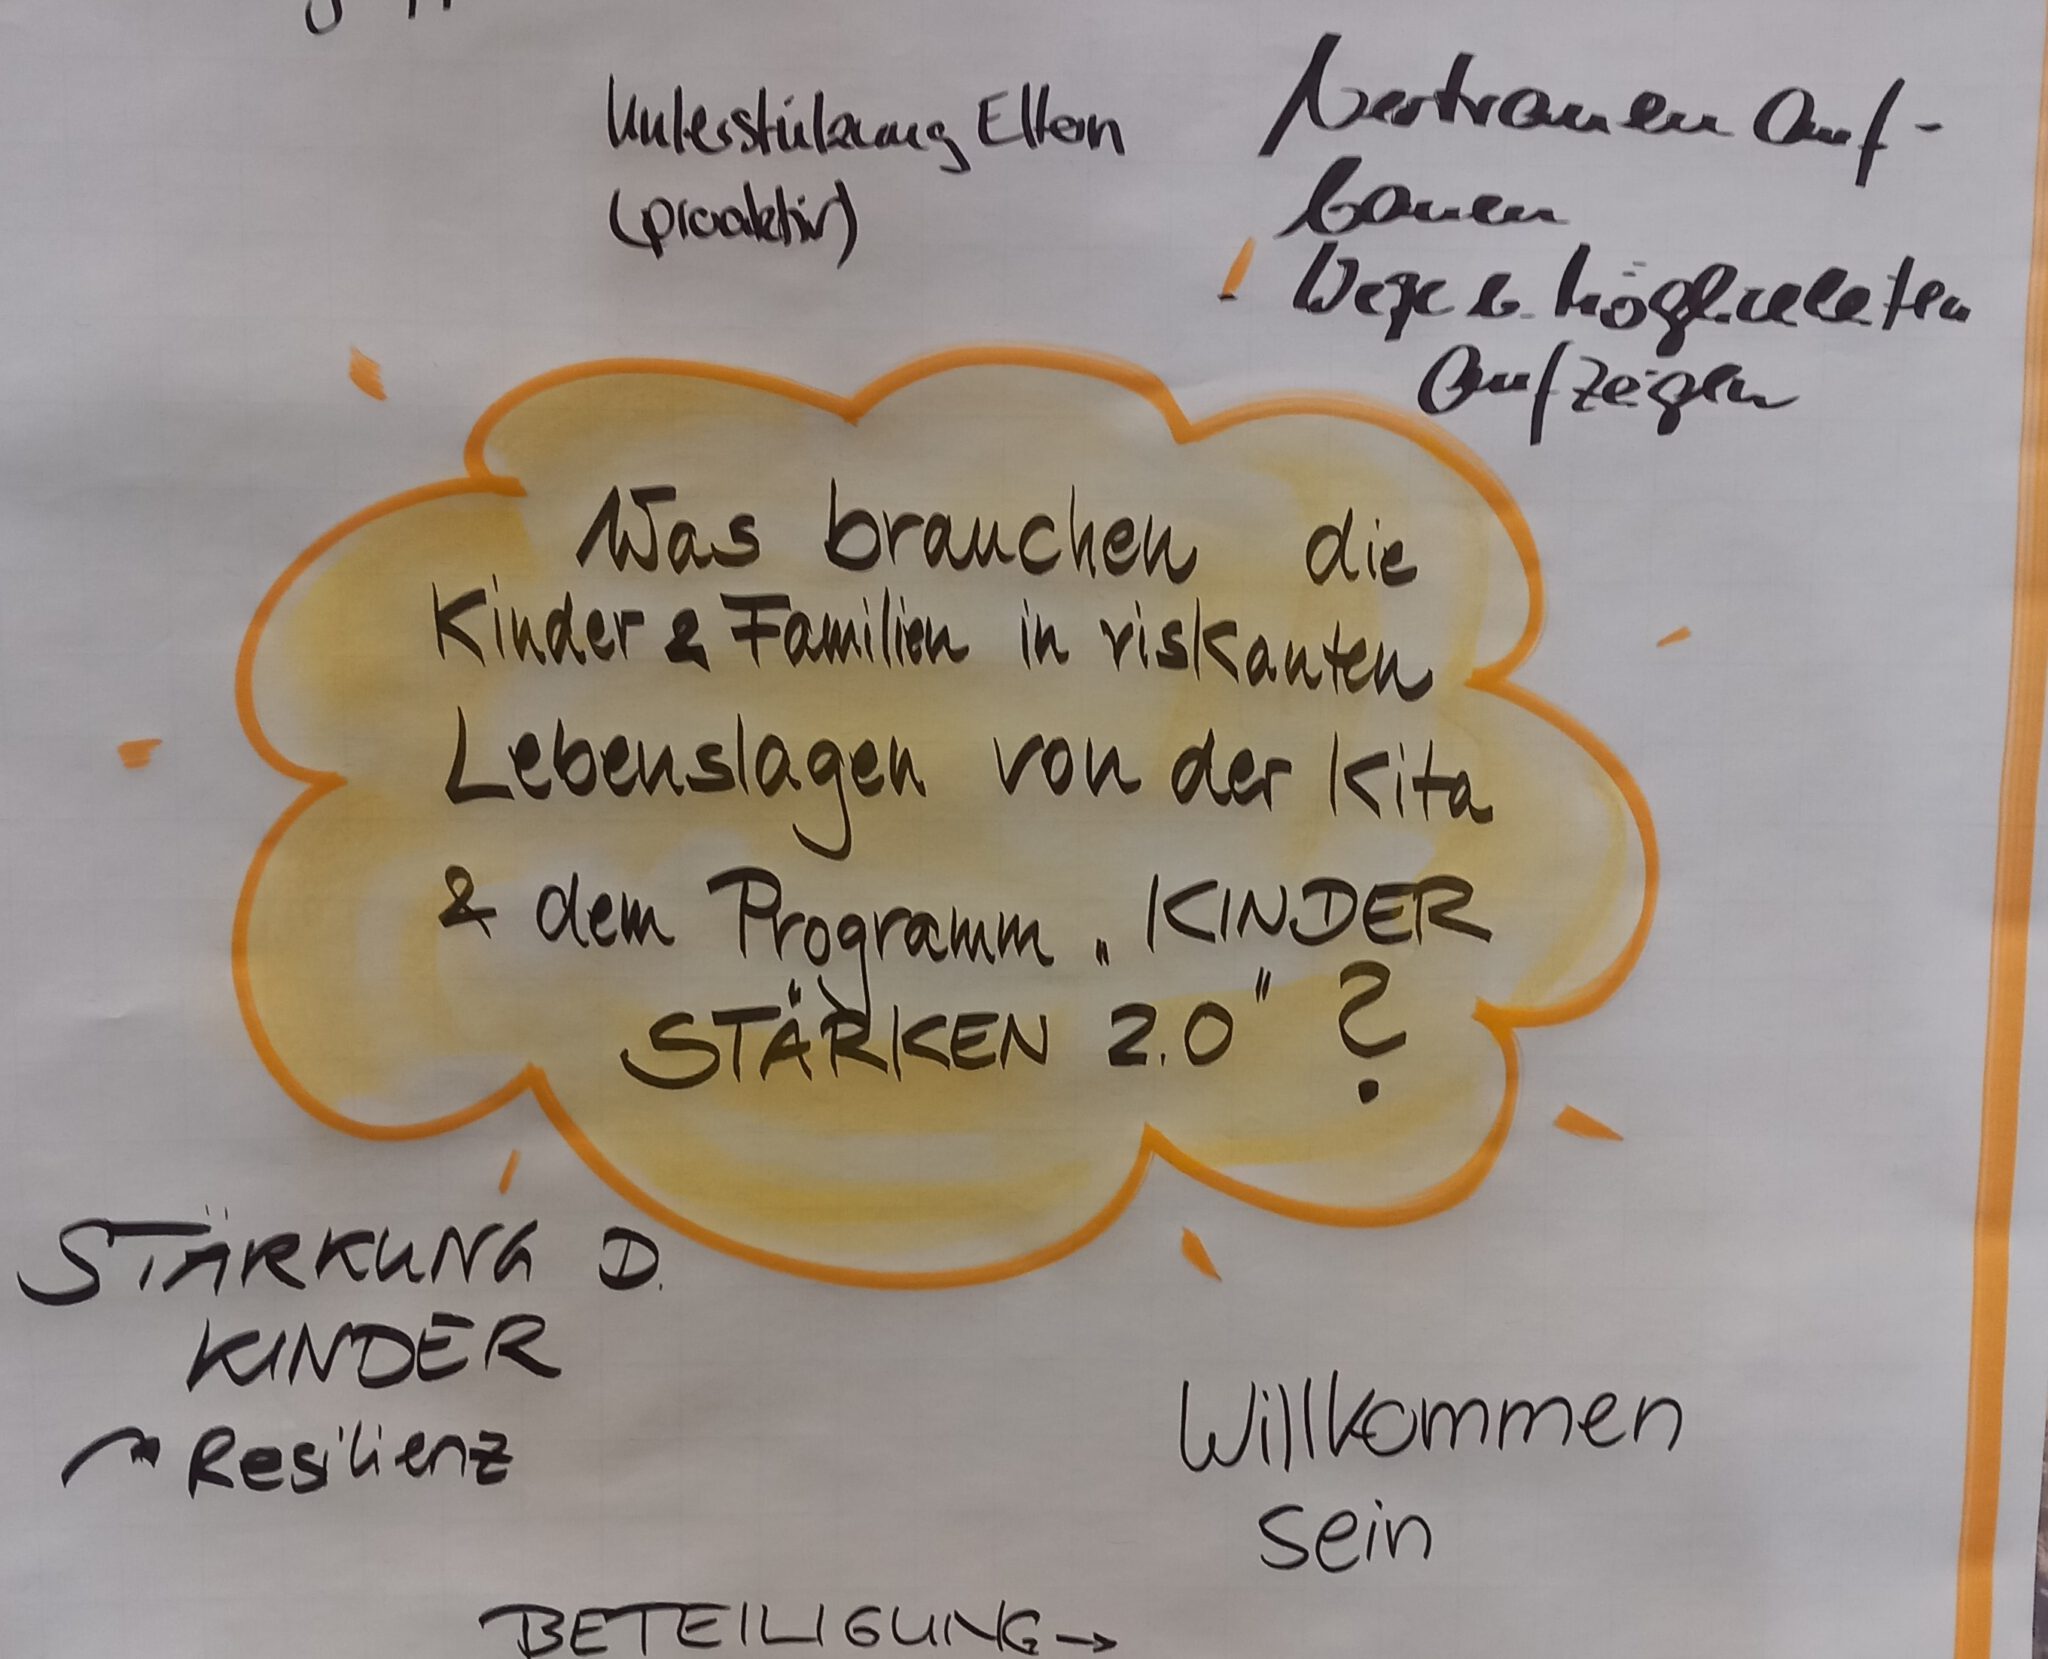 Unterstützung Eltern
(proaktiv)
Vertrauen auf-
bauen
Wege & Möglichkeiten
aufzeigen
Was brauchen die
Kinder & Familien in riskanten
Lebenslagen von der Kita
& dem Programm „KINDER
STÄRKEN 2.0" ?
STÄRKUNG D.
KINDER
Resilienz
Willkommen
sein
BETEILIGUNG →